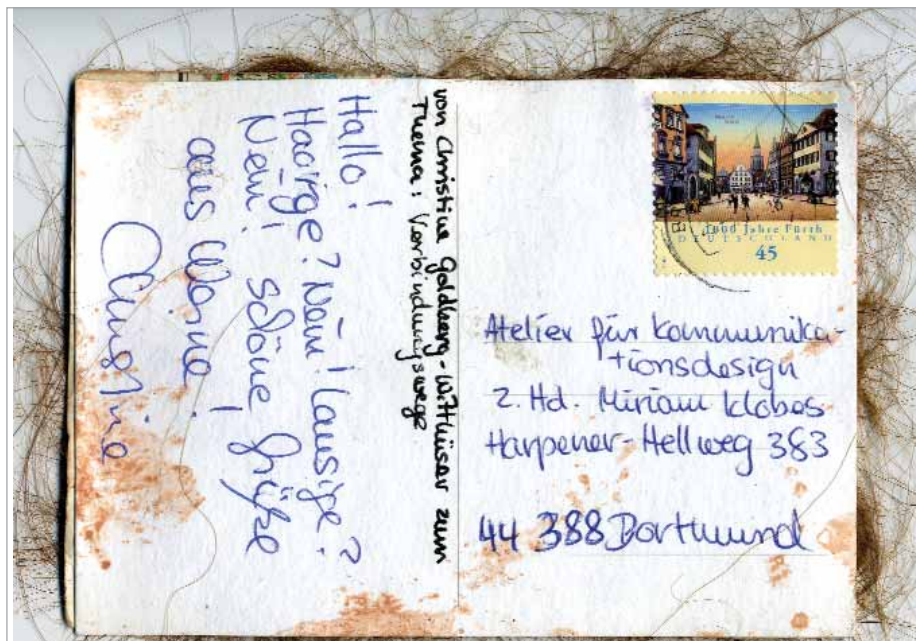 Hallo!
Haarige? Nein! Lausige?
Nein! Schöne Grüße
aus Werne!
Christine
von Christine Goldberg-Witthüser zum
Thema: Verbindungswege
1000 Jahre Fürth
DEUTSCHLAND
45
Atelier für Kommunika-
tionsdesign
z. Hd. Miriam Klobes
Harpener-Hellweg 383
44 388 Dortmund